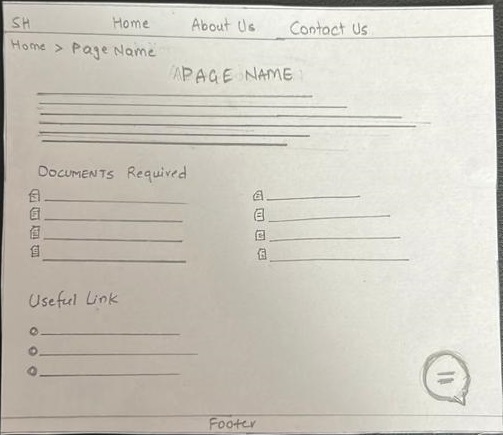 SH Home About Us Contact Us
Home > Page Name
PAGE NAME
DOCUMENTS Required
Useful Link
Footer